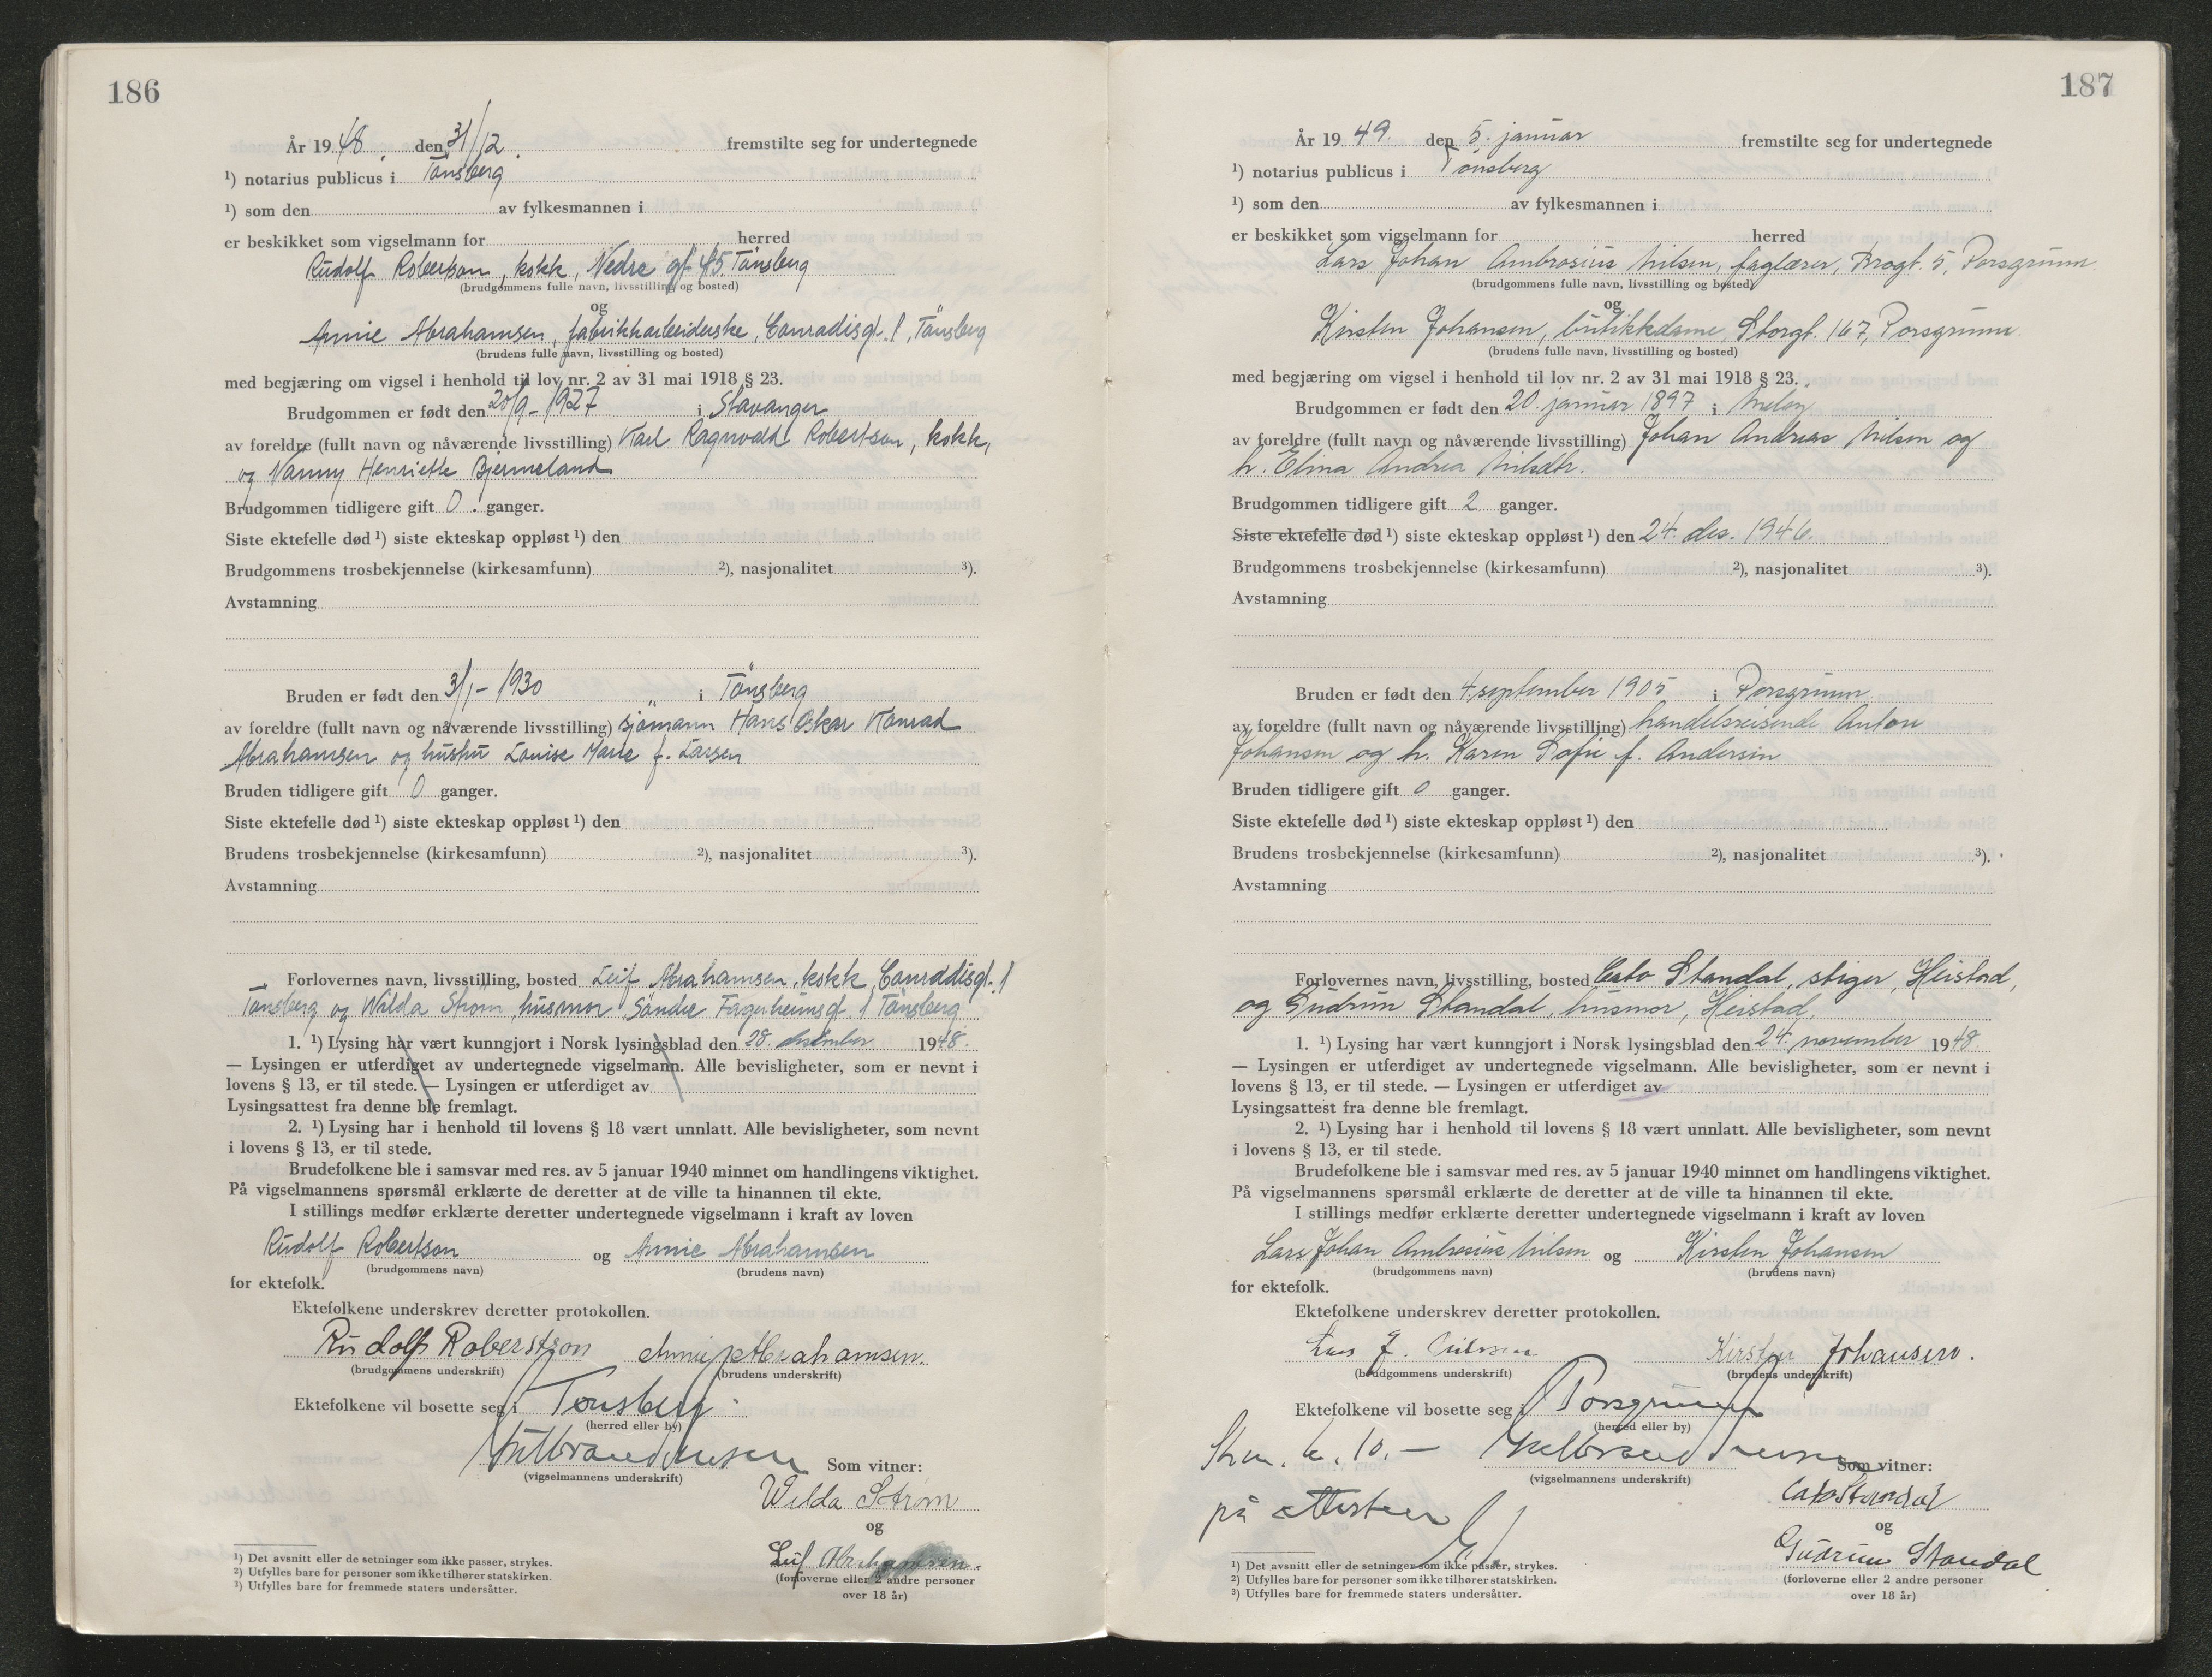 186
År 19 48. den 31/12. fremstilte seg for undertegnede
¹) notarius publicus i Tönsberg
¹) som den av fylkesmannen i
er beskikket som vigselmann for herred
Rudolf Robertson, kokk, Nedre gt. 45 Tönsberg
(brudgommens fulle navn, livsstilling og bosted)
og
Annie Abrahamsen, fabrikkarbeiderske, Conradisgt. 1, Tönsberg
(brudens fulle navn, livsstilling og bosted)
med begjæring om vigsel i henhold til lov nr. 2 av 31 mai 1918 § 23.
Brudgommen er født den 20/9 - 1927 i Stavanger
av foreldre (fullt navn og nåværende livsstilling) Karl Ragnvald Robertson, kokk,
og Nanny Henriette Bjermeland
Brudgommen tidligere gift 0. ganger.
Siste ektefelle død ¹) siste ekteskap oppløst ¹) den
Brudgommens trosbekjennelse (kirkesamfunn) ²), nasjonalitet ³).
Avstamning
Bruden er født den 3/1 - 1930 i Tönsberg
av foreldre (fullt navn og nåværende livsstilling) sjömann Hans Oskar Konrad
Abrahamsen og hustru Louise Marie f. Larsen
Bruden tidligere gift 0 ganger.
Siste ektefelle død ¹) siste ekteskap oppløst ¹) den
Brudens trosbekjennelse (kirkesamfunn) ²), nasjonalitet ³).
Avstamning
Forlovernes navn, livsstilling, bosted Leif Abrahamsen, kokk, Conradisgt. 1
Tönsberg og Wilda Strøm, husmor, Søndre Fagerheimsgt. 1 Tönsberg
1. ¹) Lysing har vært kunngjort i Norsk lysingsblad den 28. desember 1948.
— Lysingen er utferdiget av undertegnede vigselmann. Alle bevisligheter, som er nevnt i
lovens § 13, er til stede. — Lysingen er utferdiget av
Lysingsattest fra denne ble fremlagt.
2. ¹) Lysing har i henhold til lovens § 18 vært unnlatt. Alle bevisligheter, som nevnt
i lovens § 13, er til stede.
Brudefolkene ble i samsvar med res. av 5 januar 1940 minnet om handlingens viktighet.
På vigselmannens spørsmål erklærte de deretter at de ville ta hinannen til ekte.
I stillings medfør erklærte deretter undertegnede vigselmann i kraft av loven
Rudolf Robertson og Annie Abrahamsen
(brudgommens navn) (brudens navn)
for ektefolk.
Ektefolkene underskrev deretter protokollen.
Rudolf Roberstson Annie Abrahamsen.
(brudgommens underskrift) (brudens underskrift)
Ektefolkene vil bosette seg i Tønsberg
(herred eller by)
(vigselmannens underskrift) Som vitner:
Wilda Strøm
og
Leif Abrahamsen.
(forloverne eller 2 andre personer
over 18 år)
¹) Det avsnitt eller de setninger som ikke passer, strykes.
²) Utfylles bare for personer som ikke tilhører statskirken.
³) Utfylles bare for fremmede staters undersåtter.
187
År 19 49. den 5. januar fremstilte seg for undertegnede
¹) notarius publicus i Tønsberg
¹) som den av fylkesmannen i
er beskikket som vigselmann for herred
Lars Johan Ambrosius Nilsen, faglærer, Krogt. 5, Porsgrunn
(brudgommens fulle navn, livsstilling og bosted)
og
Kirsten Johansen, butikkdame, Storgt. 167, Porsgrunn
(brudens fulle navn, livsstilling og bosted)
med begjæring om vigsel i henhold til lov nr. 2 av 31 mai 1918 § 23.
Brudgommen er født den 20. januar 1897 i Meløy
av foreldre (fullt navn og nåværende livsstilling) Johan Andreas Nilsen og
h. Elina Andrea Nilsdtr.
Brudgommen tidligere gift 2 ganger.
Siste ektefelle død ¹) siste ekteskap oppløst ¹) den 24. des. 1946.
Brudgommens trosbekjennelse (kirkesamfunn) ²), nasjonalitet ³).
Avstamning
Bruden er født den 4. september 1905 i Porsgrunn
av foreldre (fullt navn og nåværende livsstilling) handelsreisende Anton
Johansen og h. Karen Sofie f. Andersen
Bruden tidligere gift 0 ganger.
Siste ektefelle død ¹) siste ekteskap oppløst ¹) den
Brudens trosbekjennelse (kirkesamfunn) ²), nasjonalitet ³).
Avstamning
Forlovernes navn, livsstilling, bosted Cato Standal, stiger, Heistad,
og Gudrun Standal, husmor, Heistad.
1. ¹) Lysing har vært kunngjort i Norsk lysingsblad den 24. november 1948.
— Lysingen er utferdiget av undertegnede vigselmann. Alle bevisligheter, som er nevnt i
lovens § 13, er til stede. — Lysingen er utferdiget av
Lysingsattest fra denne ble fremlagt.
2. ¹) Lysing har i henhold til lovens § 18 vært unnlatt. Alle bevisligheter, som nevnt
i lovens § 13, er til stede.
Brudefolkene ble i samsvar med res. av 5 januar 1940 minnet om handlingens viktighet.
På vigselmannens spørsmål erklærte de deretter at de ville ta hinannen til ekte.
I stillings medfør erklærte deretter undertegnede vigselmann i kraft av loven
Lars Johan Ambrosius Nilsen og Kirsten Johansen
(brudgommens navn) (brudens navn)
for ektefolk.
Ektefolkene underskrev deretter protokollen.
Lars J. Nilssen Kirsten Johansen.
(brudgommens underskrift) (brudens underskrift)
Ektefolkene vil bosette seg i Porsgrunn
(herred eller by)
10.-
(vigselmannens underskrift) Som vitner:
på attesten
Cato Standal
og
Gudrun Standal
(forloverne eller 2 andre personer
over 18 år)
¹) Det avsnitt eller de setninger som ikke passer, strykes.
²) Utfylles bare for personer som ikke tilhører statskirken.
³) Utfylles bare for fremmede staters undersåtter.